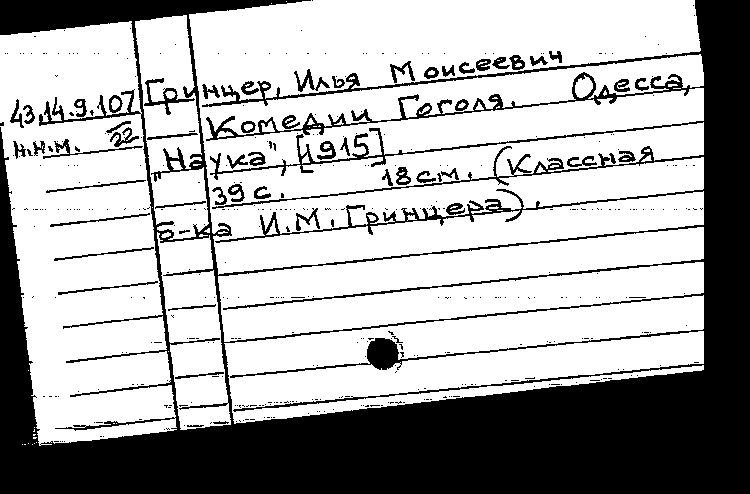 Гринцер, Илья Моисеевич
43.14.9.107 Комедии Гоголя. Одесса,
н.н.м. 22 „Наука", [1915].
39 с. 18 см. (Классная
б-ка И.М. Гринцера).